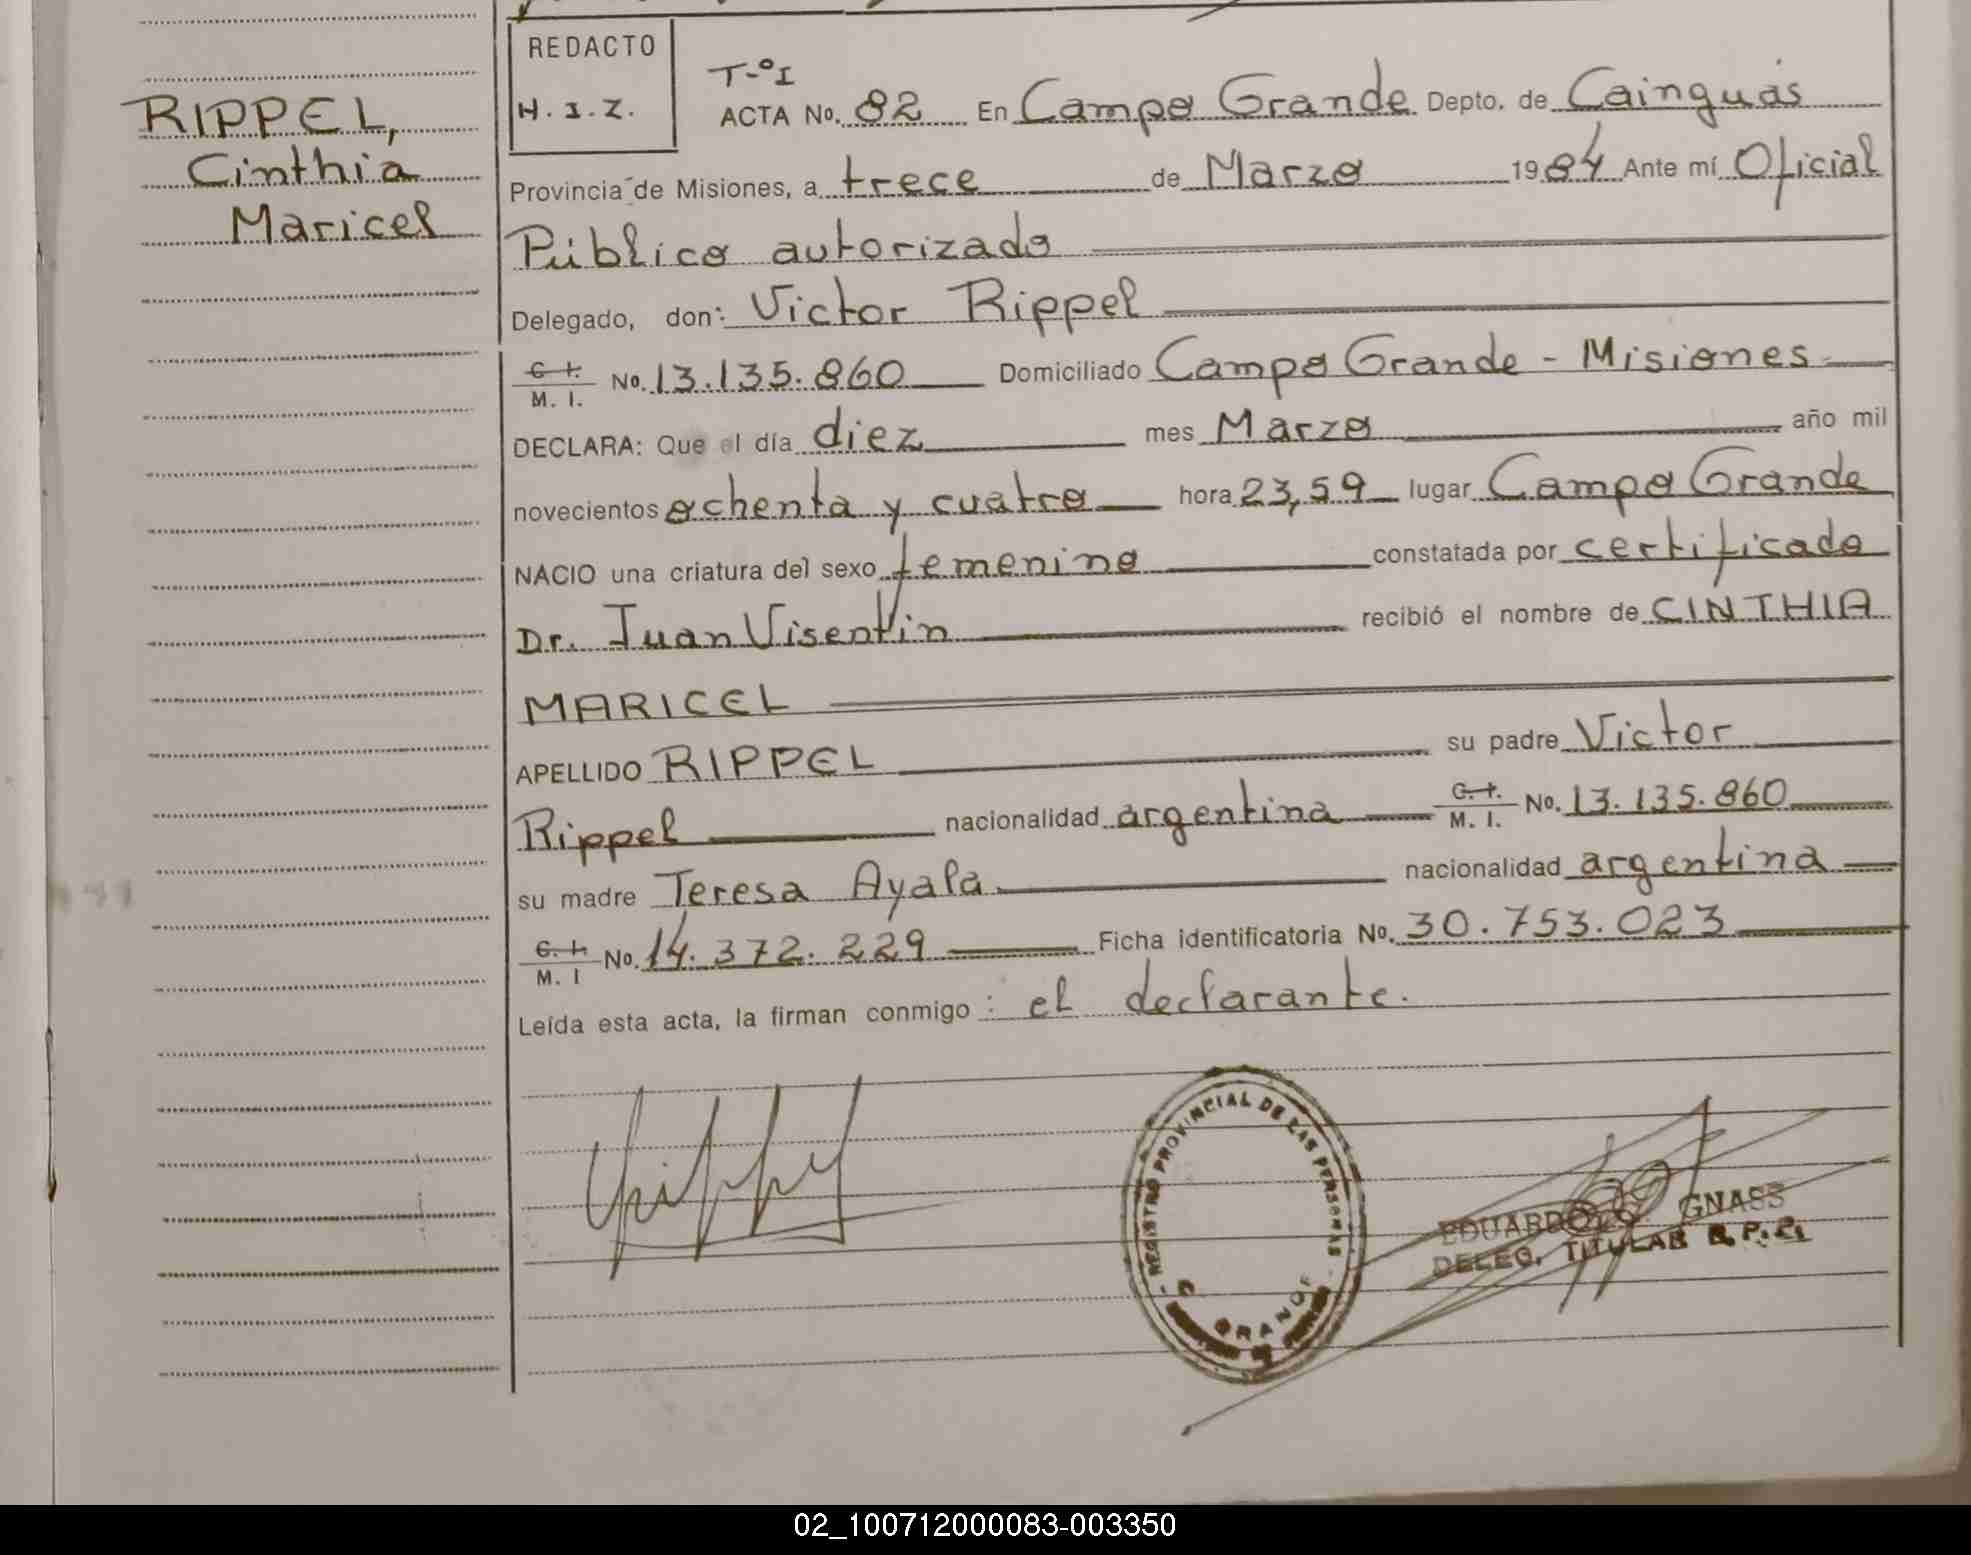 RIPPEL,
Cinthia
Maricel
REDACTO
H. I. Z.
T-º I
ACTA No. 82 En Campo Grande Depto. de Cainguás
Provincia de Misiones, a trece de Marzo 1984 Ante mí Oficial
Público autorizado
Delegado, don: Victor Rippel
C. I. M. I. No. 13.135.860 Domiciliado Campo Grande - Misiones
DECLARA: Que el día diez mes Marzo año mil
novecientos ochenta y cuatro hora 23,59 lugar Campo Grande
NACIO una criatura del sexo femenino constatada por certificado
Dr. Juan Visentin recibió el nombre de CINTHIA
MARICEL
APELLIDO RIPPEL su padre Victor
Rippel nacionalidad argentina C. I. M. I. No. 13.135.860
su madre Teresa Ayala nacionalidad argentina
C. I. M. I No. 14.372.229 Ficha identificatoria No. 30.753.023
Leída esta acta, la firman conmigo : el declarante.
- REGISTRO PROVINCIAL DE LAS PERSONAS -
C GRANDE
EDUARDO GNASS
DELEG. TITULAR R.P.P.
02_100712000083-003350